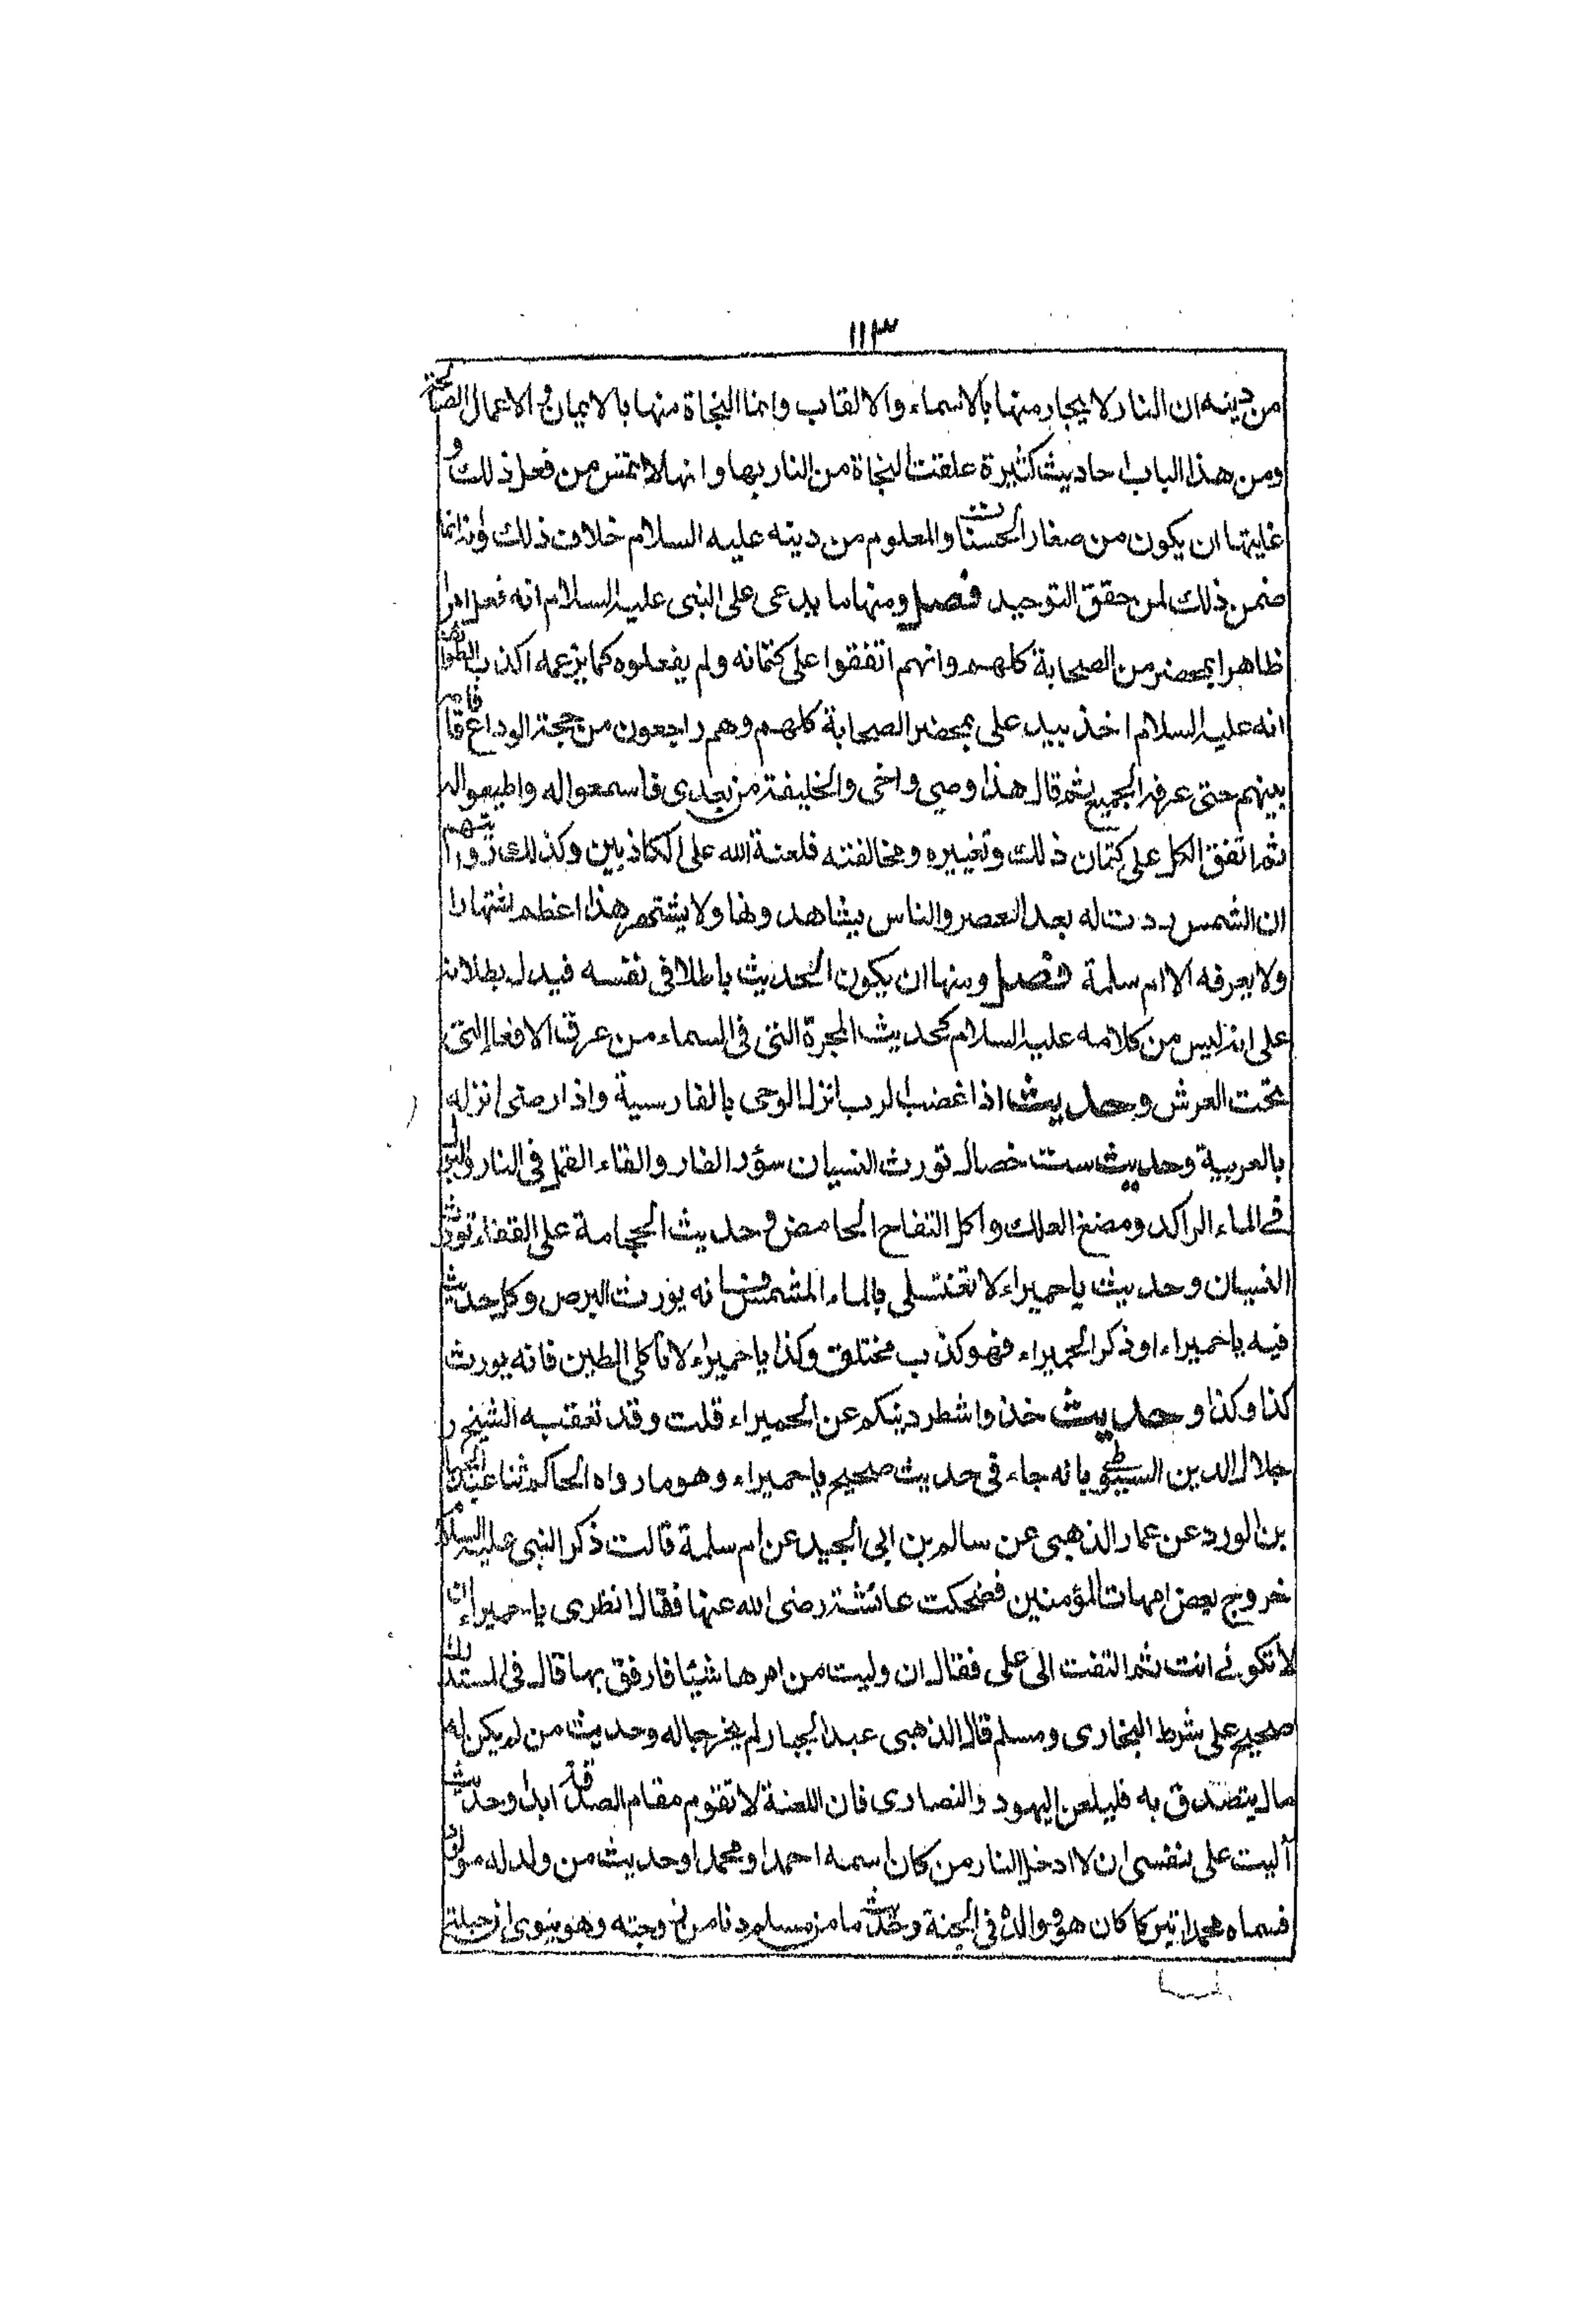 ١١٣
من دينه ان النار لا يجار منها بالاسماء والالقاب وانما النجاة منها بالايمان و الاعمال الصالحة
ومن هذا الباب احاديث كثيرة علقت النجاة من النار بها وانها لا تمس من فعل ذلك و
غايتها ان يكون من صغار الحسنات والمعلوم من دينه عليه السلام خلاف ذلك وانه انما
ضمن ذلك لمن حقق التوحيد فصل ومنها ما يدعى على النبى عليه السلام انه فعل امرا
ظاهرا بمحضر من الصحابة كلهم وانهم اتفقوا على كتمانه ولم يفعلوه كما يزعمه اكذب الطوائف
انه عليه السلام اخذ بيد على بمحضر الصحابة كلهم وهم راجعون من حجة الوداع فاقامه
بينهم حتى عرفه الجميع ثم قال هذا وصي واخى والخليفة من بعدى فاسمعوا له واطيعوا له
ثم اتفق الكل على كتمان ذلك وتغييره ومخالفته فلعنة الله على الكاذبين وكذلك روايتهم
ان الشمس ردت له بعد العصر والناس يشاهدونها ولا يشتهر هذا اعظم اشتهارا
ولا يعرفه الا ام سلمة فصل ومنها ان يكون الحديث باطلا فى نفسه فيدل بطلانه
على انه ليس من كلامه عليه السلام كحديث المجرة التى فى السماء من عرق الافعا التى
تحت العرش وحديث اذا غضب الرب انزل الوحى بالفارسية واذا رضى انزله
بالعربية وحديث ست خصال تورث النسيان سؤر الفار والقاء القمل فى النار والبول
فى الماء الراكد ومضغ العلك واكل التفاح الحامض و حديث الحجامة على القفاء تورث
النسيان وحديث يا حميراء لا تغتسلى بالماء المشمس فانه يورث البرص وكل حديث
فيه يا حميراء او ذكر الحميراء فهو كذب مختلق وكذا يا حميراء لا تأكلى الطين فانه يورث
كذا وكذا وحديث خذوا شطر دينكم عن الحميراء قلت وقد تعقبه الشيخ
جلال الدين السيوطى بانه جاء فى حديث صحيح يا حميراء وهو ما رواه الحاكم ثنا عبد الجبار
بن الورد عن عمار الذهبى عن سالم بن ابى الجعيد عن ام سلمة قالت ذكر النبى عليه السلام
خروج بعض امهات المؤمنين فضحكت عائشة رضى الله عنها فقال انظرى يا حميراء ان
لا تكونى انت ثم التفت الى على فقال ان وليت من امرها شيئا فارفق بها قال فى المستدرك
صحيح على شرط البخارى ومسلم قال الذهبى عبد الجبار لم يخرجا له وحديث من لم يكن له
مال يتصدق به فليلعن اليهود والنصارى فان اللعنة لا تقوم مقام الصدقة ابدا وحديث
آليت على نفسى ان لا ادخل النار من كان اسمه احمد او محمدا وحديث من ولد له مولود
فسماه محمدا تبركا كان هو والده فى الجنة وحديث ما من مسلم دنا من زوجته وهو ينوى ان حبلت